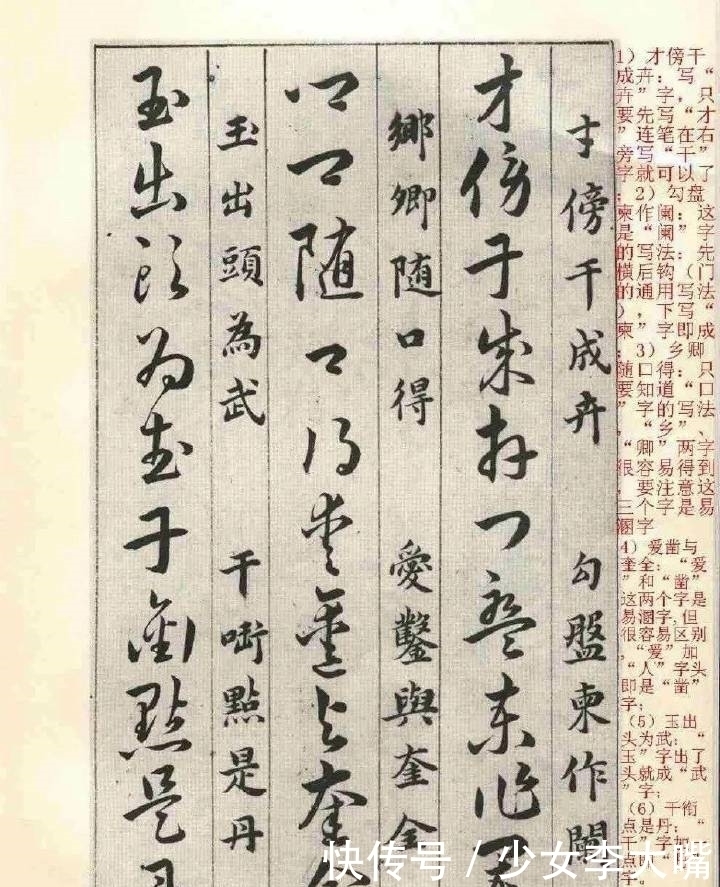 1）才傍干
成卉：写“
卉”字，只
要先写“才
”连笔在右
旁写“干”
字就可以了
；2）勾盘
柬作阑：这
是“阑”字
的写法：先
横后钩（门
的通用写法
），下写“
柬”字即成
；3）乡卿
随口得：只
要知道“口
”字的写法
，“乡”、
“卿”两字
很容易得到
，要注意这
三个字是易
溷字
4）爱凿与
奎全：“爱
”和“凿”
这两个字是
易溷字,但
很容易区别
,“爱”加
“人”字头
即是“凿”
字;
（5）玉出
头为武：“
玉”字出了
头就成“武
”字;
（6）干衔
点是丹：“
干”字加
点即“
字
才傍干成卉 勾盤柬作闌
才傍干成卉勾盤柬作
鄉卿随口得 愛鑿與奎全
鄉卿随口得愛鑿与奎
玉出頭為武 干啣點是丹
玉出頭為武干銜點是丹
快传号／少女李大嘴